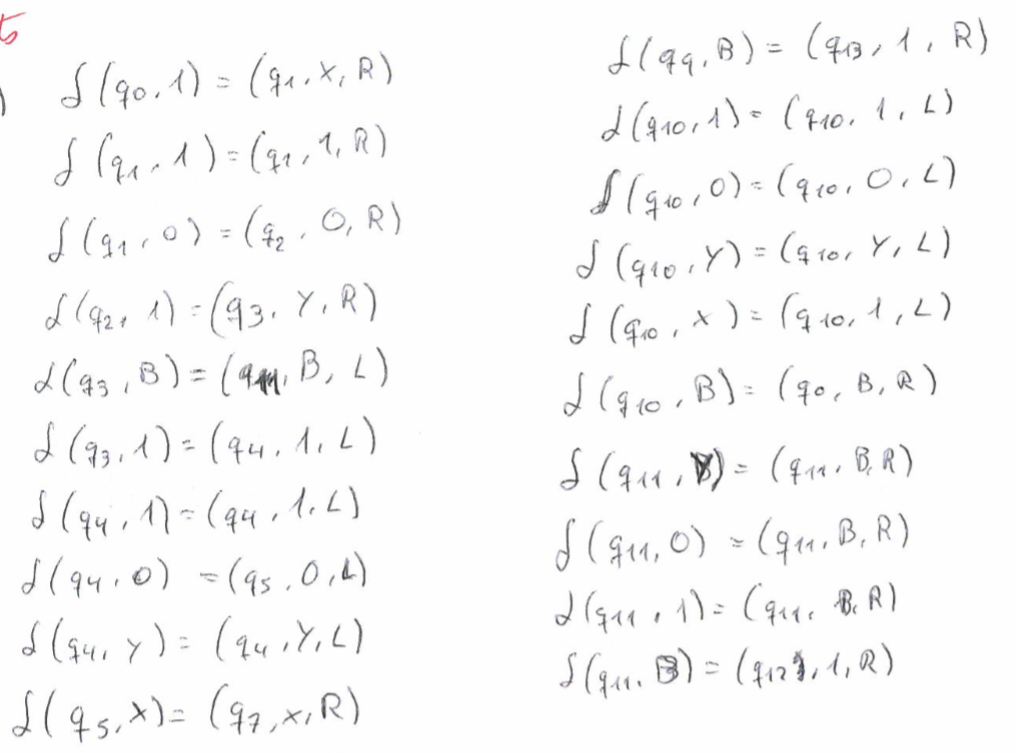 ts
)
δ(q0, 1) = (q1, X, R)
δ(q1, 1) = (q1, 1, R)
δ(q1, 0) = (q2, 0, R)
δ(q2, 1) = (q3, Y, R)
δ(q3, B) = (q11, B, L)
δ(q3, 1) = (q4, 1, L)
δ(q4, 1) = (q4, 1, L)
δ(q4, 0) = (q5, 0, L)
δ(q4, Y) = (q4, Y, L)
δ(q5, X) = (q7, X, R)
δ(q9, B) = (q13, 1, R)
δ(q10, 1) = (q10, 1, L)
δ(q10, 0) = (q10, 0, L)
δ(q10, Y) = (q10, Y, L)
δ(q10, X) = (q10, 1, L)
δ(q10, B) = (q0, B, R)
δ(q11, Y) = (q11, B, R)
δ(q11, 0) = (q11, B, R)
δ(q11, 1) = (q11, B, R)
δ(q11, B) = (q12, 1, R)